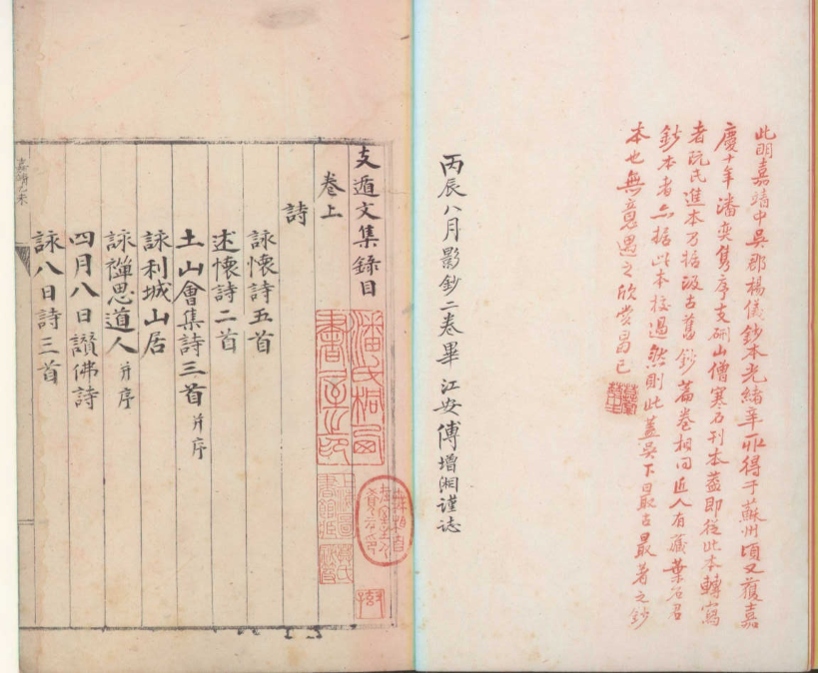 此明嘉靖中吳郡楊儀鈔本光緒辛卯得于蘇州頃又獲嘉
慶十年潘奕雋序支硎山僧寒石刊本蓋即從此本轉寫
者阮氏進本乃據汲古舊鈔篇卷相同近人有藏葉石君
鈔本者亦據此本校過然則此蓋吳下最古最著之鈔
本也無意遇之欣賞曷已
丙辰八月影鈔二卷畢江安傅增湘謹誌
支遁文集錄目
卷上
詩
詠懷詩五首
述懷詩二首
土山會集詩三首 并序
詠利城山居
詠禪思道人 并序
四月八日讚佛詩
詠八日詩三首